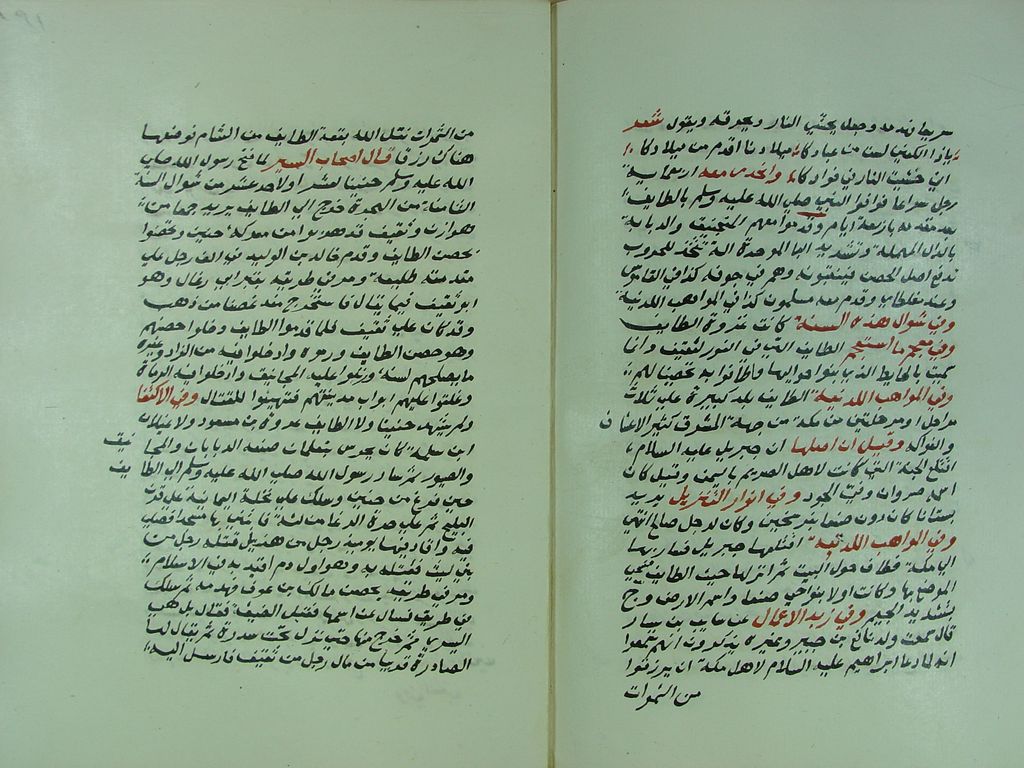 سريعا فهدمه وجعل يحثي النار ويحرقه ويقول شعر
يا ذا الكفين لست من عبادكا ميلادنا اقدم من ميلادكا
اني حثثت النار في فوادكا وانحدر معه اربعماية
رجل سراعا فوافوا النبي صلي الله عليه وسلم بالطايف
بعد مقدمه باربعة ايام وقدموا معهم المنجنيق والدبابة
بالدال المهملة وتشديد البا الموحدة الة تتخذ للحروب
تدفع اصل الحصن فينقبونه وهم في جوفه كذا في القاموس
وعند مغلطاي وقدم معه مسلمون كذا في المواهب اللدنية
وفي شوال هذه السنة كانت غزوة الطايف
وفي معجم ما استعجم الطايف التي في الغور لثقيف وانما
سميت بالحايط الذي بنوا حواليها واطافوا به تحصينا لها
وفي المواهب اللدنية الطايف بلد كبيرة علي ثلاث
مراحل او مرحلتين من مكة من جهة المشرق كثير الاعناب
والفواكه وقيل ان اصلها ان جبريل عليه السلام
اقتلع الجنة التي كانت لاهل الصريم باليمن وقيل كان
اسمه صروان وفي انوار التنزيل يريد
بستانا كان دون صنعا بفرسخين وكان لرجل صالح انتهي
وفي المواهب اللدنية اقتلعها جبريل فسار بها
الي مكة فطاف حول البيت ثم انزلها حيث الطايف فسمي
الموضع بها وكانت اولا بنواحي صنعا واسم الارض وج
بتشديد الجيم وفي زبد الاعمال عن سايب بن يسار
قال سمعت ولد نافع بن جبير وغيره يذكرون انهم سمعوا
انه لما دعا ابراهيم عليه السلام لاهل مكة ان يرزقوا
من الثمرات
من الثمرات نقل الله بقعة الطايف من الشام فوضعها
هناك رزقا قال اصحاب السير لما فتح رسول الله صلي
الله عليه وسلم حنينا لعشر او لاحد عشر من شوال السنة
الثامنة من الهجرة خرج الي الطايف يريد جمعا من
هوازن وثقيف قد هربوا من معركة حنين وتحصنوا
بحصن الطايف وقدم خالد بن الوليد في الف رجل علي
مقدمته طليعة ومر في طريقه بقبر ابي رغال وهو
ابو ثقيف فيما يقال فاستخرج منه غصنا من ذهب
وقد كان علي ثقيف فلما قدموا الطايف دخلوا حصنهم
وهو حصن الطايف ورموه وادخلوا فيه من الزاد وغيره
ما يصلحهم لسنة ورتبوا عليه المجانيق وادخلوا فيه الرماة
وغلقوا عليهم ابواب مدينتهم فتهيئوا للقتال وفي الاكتفا
ولم يشهد حنينا ولا الطايف عروة بن مسعود ولا غيلان
ابن سلمة كانا بجرش يتعلمان صنعة الدبابات والمجانيق
والضبور ثم سار رسول الله صلي الله عليه وسلم الي الطايف
حين فرغ من حنين وسلك علي نخلة اليمانية ثم علي قرن
المليح ثم علي بحرة الرغا من لية فابتني بها مسجدا فصلي
فيه واقاد فيها يوميذ رجل من هذيل قتله رجل من
بني ليث فقتله به وهو اول دم اقيد به في الاسلام
ومر في طريقه بحصن مالك بن عوف فهدمه ثم سلك
في طريق فسال عن اسمها فقيل الضيقة فقال بل هي
اليسري ثم خرج منها حتي نزل تحت سدرة يقال لها
الصادرة قريبا من مال رجل من ثقيف فارسل اليه